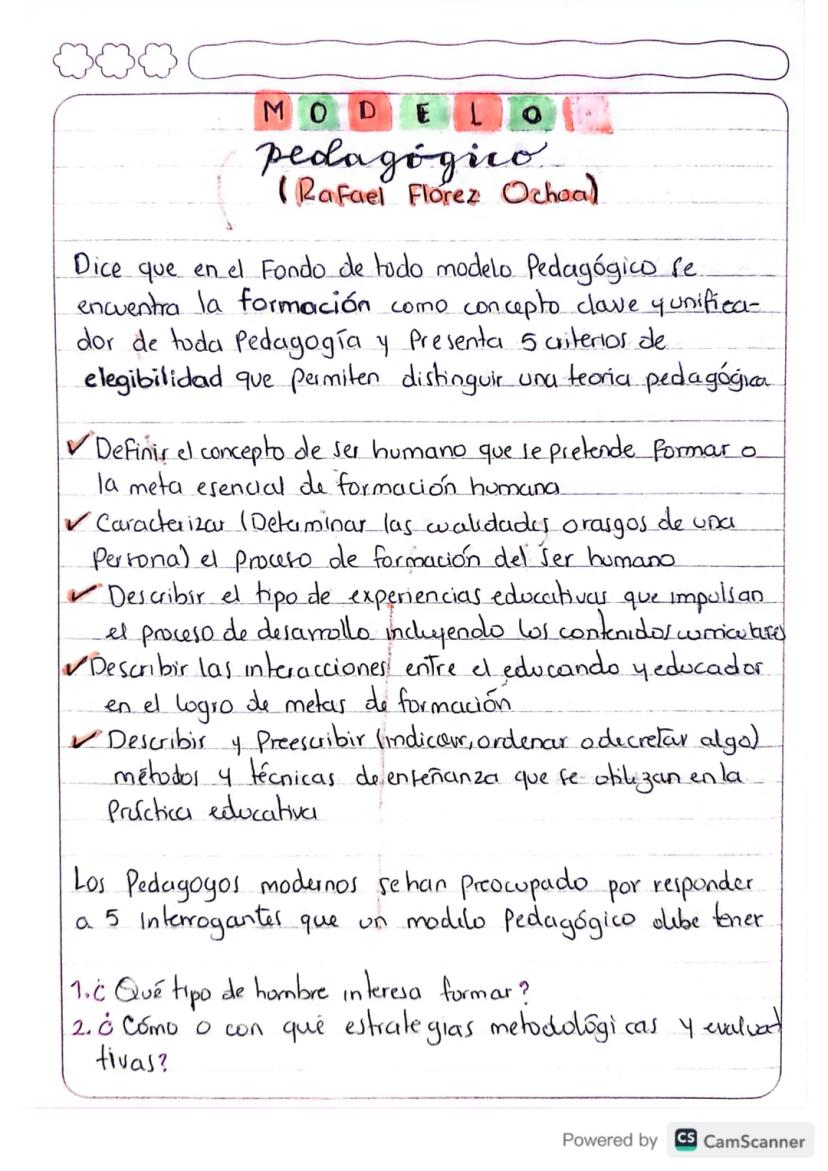 MODELO
pedagógico
(Rafael Flórez Ochoa)
Dice que en el Fondo de todo modelo Pedagógico se
encuentra la formación como concepto clave y unifica-
dor de toda Pedagogía y Presenta 5 criterios de
elegibilidad que Permiten distinguir una teoria pedagógica
✓ Definir el concepto de ser humano que se pretende formar o
la meta esencial de formación humana
✓ Caracterizar (Determinar las cualidades o rasgos de una
Persona) el proceso de formación del ser humano
✓ Describir el tipo de experiencias educativas que impulsan
el proceso de desarrollo incluyendo los contenidos curriculares
✓ Describir las interacciones entre el educando y educador
en el logro de metas de formación
✓ Describir y Preescribir (indicar, ordenar o decretar algo)
métodos y técnicas de enseñanza que se utilizan en la
Práctica educativa
Los Pedagogos modernos se han Preocupado por responder
a 5 Interrogantes que un modelo Pedagógico debe tener
1. ¿Qué tipo de hombre interesa formar?
2. ¿Cómo o con qué estrategias metodológicas y evalua
tivas?
Powered by CS CamScanner